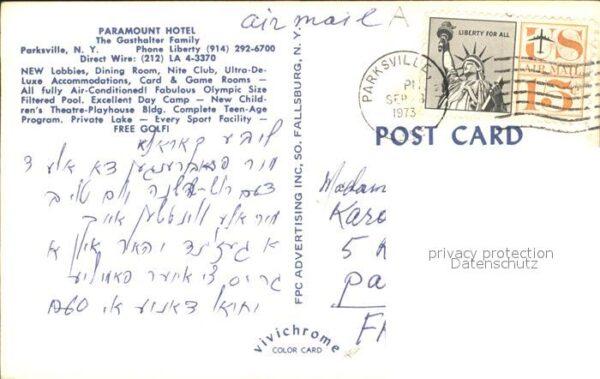 PARAMOUNT HOTEL
The Gasthalter Family
Parksville, N. Y. Phone Liberty (914) 292-6700
Direct Wire: (212) LA 4-3370
NEW Lobbies, Dining Room, Nite Club, Ultra-De-
Luxe Accommodations, Card & Game Rooms —
All fully Air-Conditioned! Fabulous Olympic Size
Filtered Pool. Excellent Day Camp — New Chil-
dren's Theatre-Playhouse Bldg. Complete Teen-Age
Program. Private Lake — Every Sport Facility —
FREE GOLF!
air mail A
LIBERTY FOR ALL
US
AIR MAIL
15¢
PARKSVILLE,
PM
SEP
1973
POST CARD
ליבע
מיר פארברענגען דא אלע
מיר אלע ווינטשן אייך
א יאהר און א
גריס צו אייער פאמיליע
FPC ADVERTISING INC, SO. FALLSBURG, N. Y.
Madam
Karo
5
Pa
FR
privacy protection
Datenschutz
vivichrome
COLOR CARD